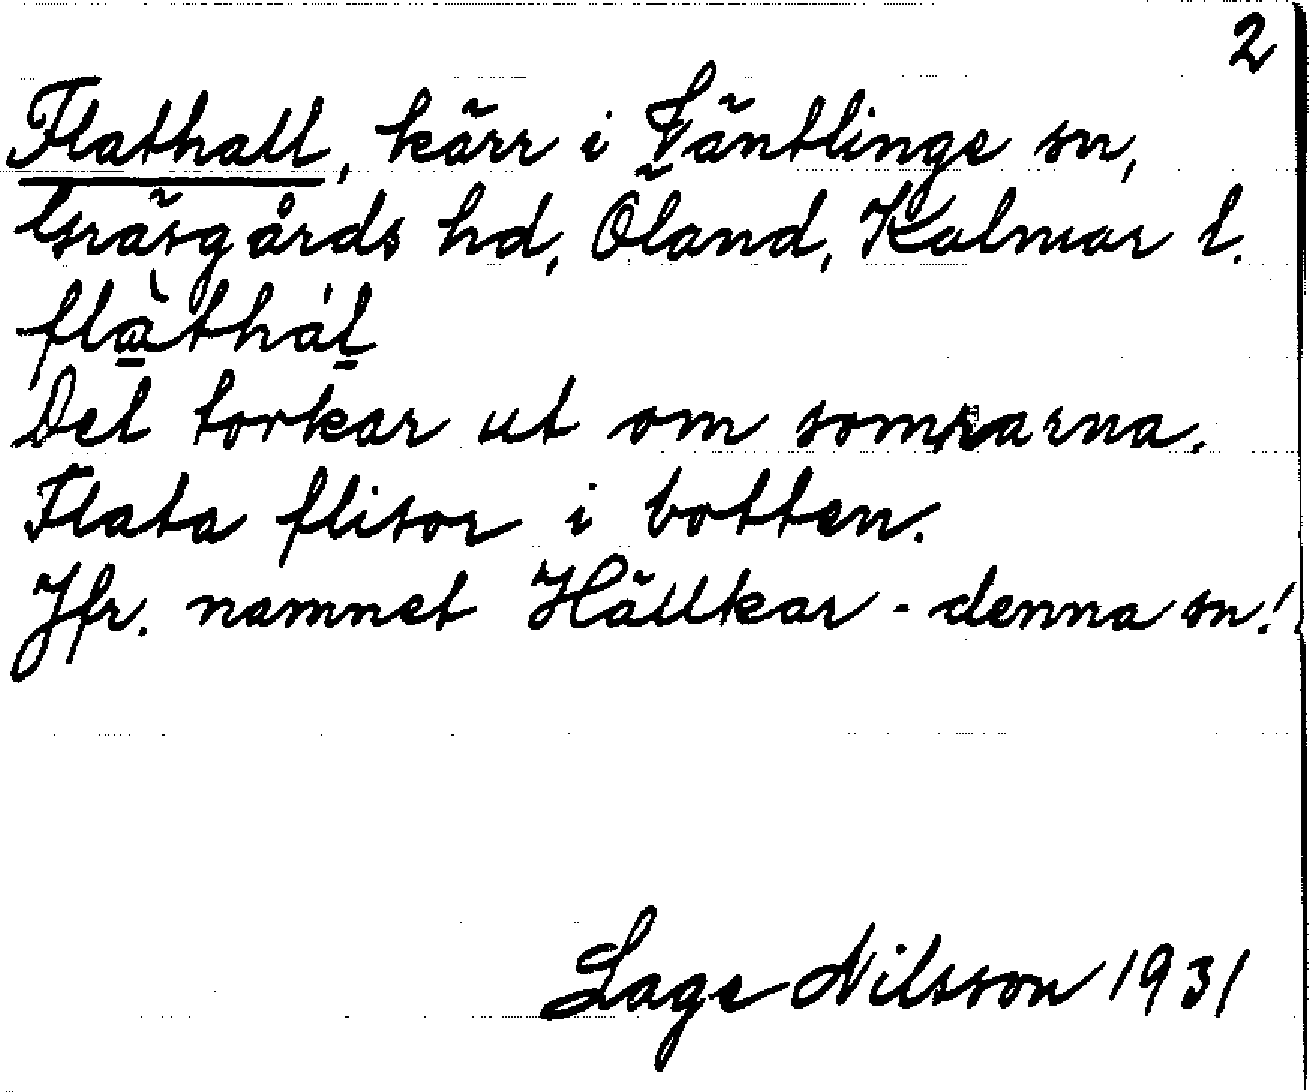 2
Flathall, kärr i Väntlinge sn,
Gräsgårds hd, Öland, Kalmar l.
flà̱thál̠
Det torkar ut om somrarna.
Flata flisor i botten.
Jfr. namnet Hällkar - denna sn!
Lage Nilsson 1931